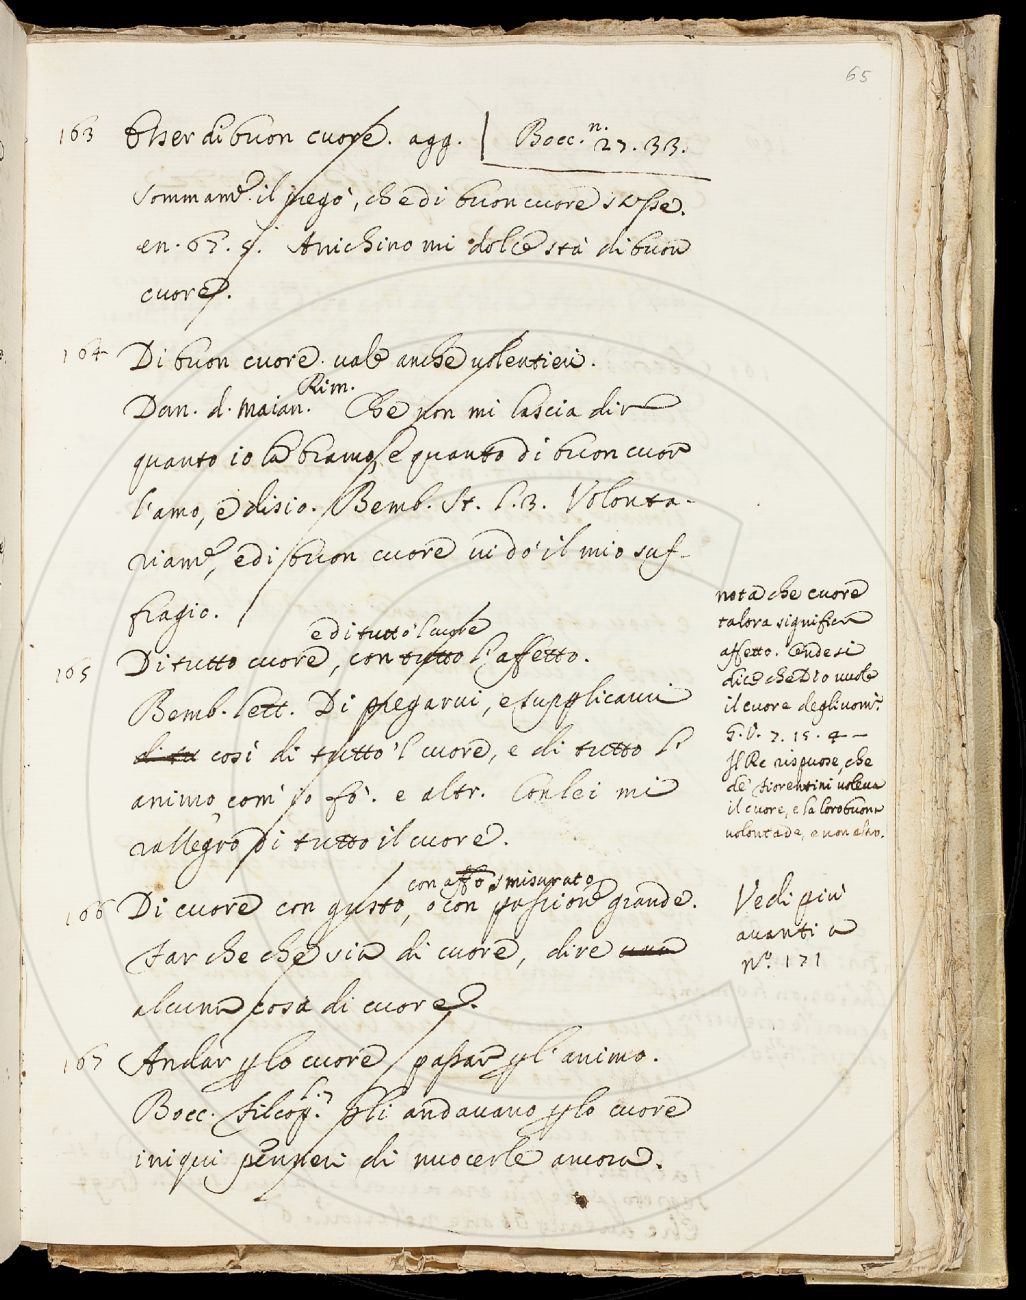 65
163 Esser di buon cuore. agg. | Bocc. n. 27. 33.
Sommam.e il pregò, che di buon cuore stesse.
en. 67. 9. Anichino mi dolce stà di buon
cuore.
164 Di buon cuore. vale anche volentieri.
Dan. d. Maian. Rim. Che non mi lascia dir
quanto io la bramo, e quanto di buon cuor
l'amo, e disio. Bemb. St. l. 3. Volonta-
riam.e, e di buon cuore vi dò il mio suf-
fragio.
e di tutto 'l cuore
165 Di tutto cuore, con tutto l'affetto.
Bemb. lett. Di pregarvi, e supplicarvi
di tu così di tutto 'l cuore, e di tutto l'
animo, com' io fò. e altr. Con lei mi
rallegro di tutto il cuore.
con aff.o smisurato
166 Di cuore con gusto, o con passione grande.
Far che che sia di cuore, dire una
alcuna cosa di cuore.
167 Andar p lo cuore passar p l'animo.
Bocc. Filcop. l. 7. Gli andavano p lo cuore
iniqui pensieri di nuocerle ancora.
nota che cuore
talora significa
affetto. Onde si
dice che Dio vuole
il cuore degli uomi.
G. V. 7. 15. 4
Il Re rispuose, che
de' Fiorentini voleva
il cuore, e la loro buona
volontade, e non altro.
Vedi più
avanti a
n.o 171